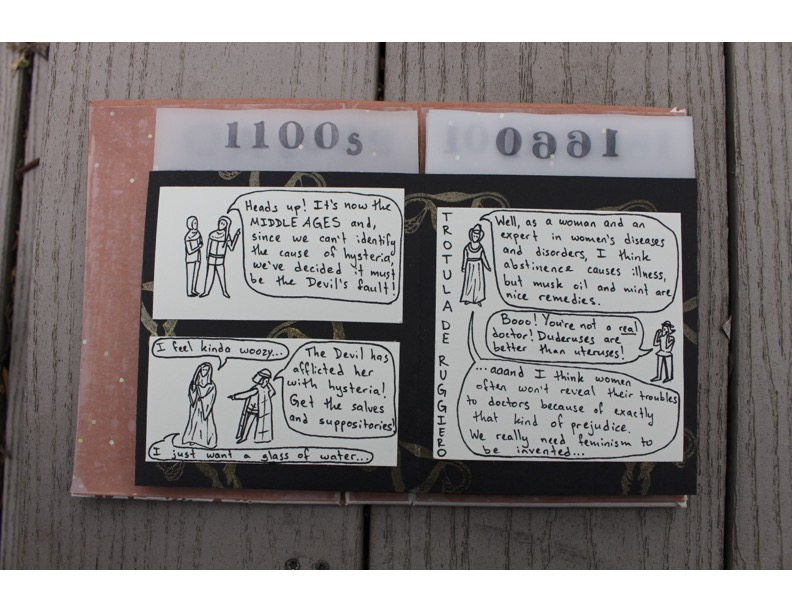 1100s
Heads up! It's now the
MIDDLE AGES and,
since we can't identify
the cause of hysteria,
we've decided it must
be the Devil's fault!
I feel kinda woozy...
The Devil has
afflicted her
with hysteria!
Get the salves
and suppositories!
I just want a glass of water...
TROTULA DE RUGGIERO
Well, as a woman and an
expert in women's diseases
and disorders, I think
abstinence causes illness,
but musk oil and mint are
nice remedies.
Booo! You're not a real
doctor! Duderuses are
better than uteruses!
...aaand I think women
often won't reveal their troubles
to doctors because of exactly
that kind of prejudice.
We really need feminism to
be invented...